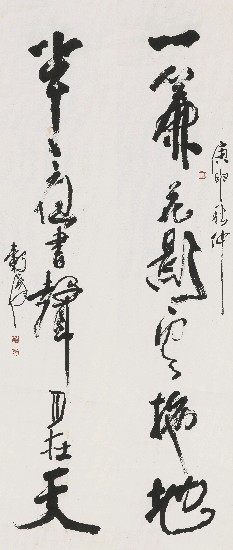 一簾花影雲拖地
半夜書聲月在天